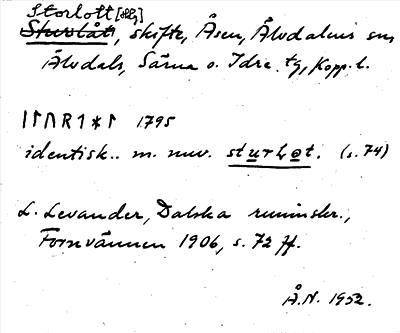 Storlott [OA],
Sturlåt, skifte, Åsen, Älvdalens sn,
Älvdals, Särna o. Idre tg, Kopp. l.
ᛁᛚᚢᚱᛐᚼᛚ 1795
identisk.. m. nuv. sturlot. (s. 74)
L. Levander, Dalska runinskr.,
Fornvännen 1906, s. 72 ff.
Å.N. 1952.